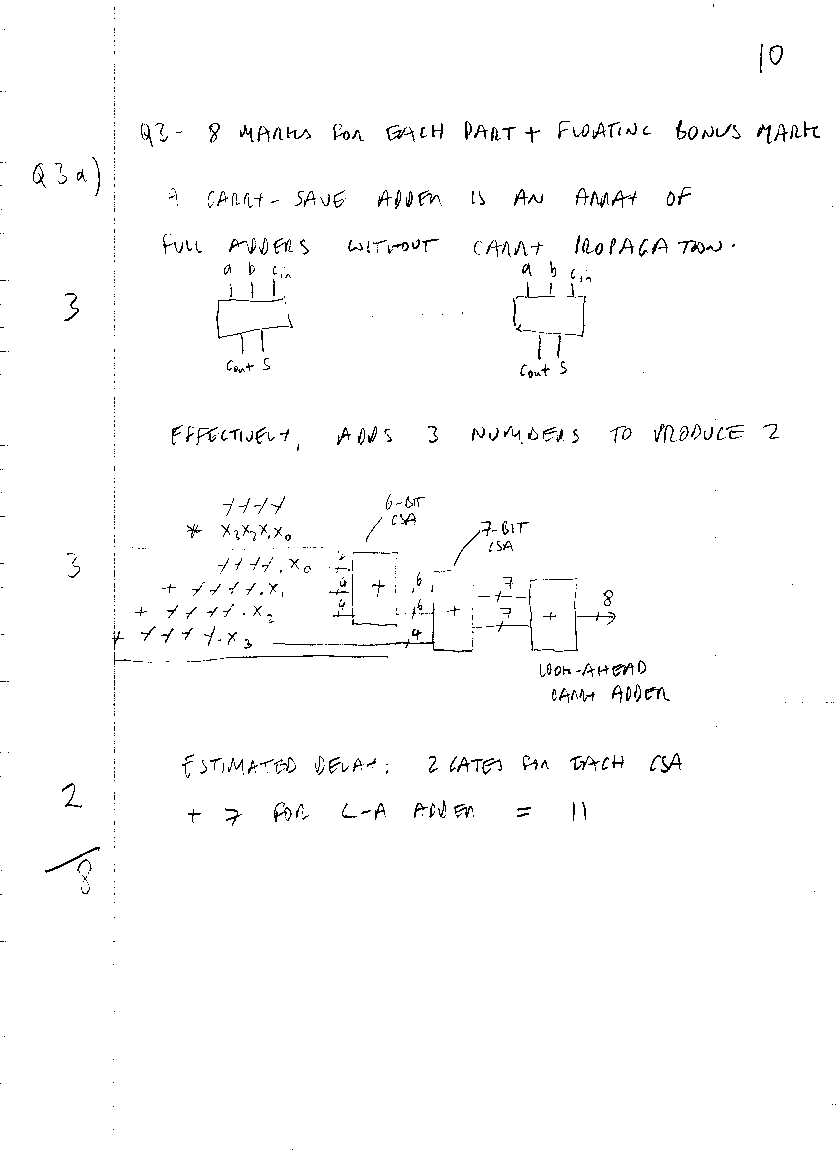 10
Q3 - 8 MARKS FOR EACH PART + FLOATING BONUS MARK
Q3a)
A CARRY-SAVE ADDER IS AN ARRAY OF
FULL ADDERS WITHOUT CARRY PROPAGATION.
a b Cin a b Cin
3
Cout S Cout S
EFFECTIVELY, ADDS 3 NUMBERS TO PRODUCE 2
YYYY
* X3X2X1X0
6-BIT
CSA
7-BIT
CSA
3
YYYY.X0
+ YYYY.X1
+ YYYY.X2
+ YYYY.X3
4 4 + 6 6 4 + 7 7 + 8
LOOK-AHEAD
CARRY ADDER
ESTIMATED DELAY: 2 GATES FOR EACH CSA
2
+ 7 FOR L-A ADDER = 11
8